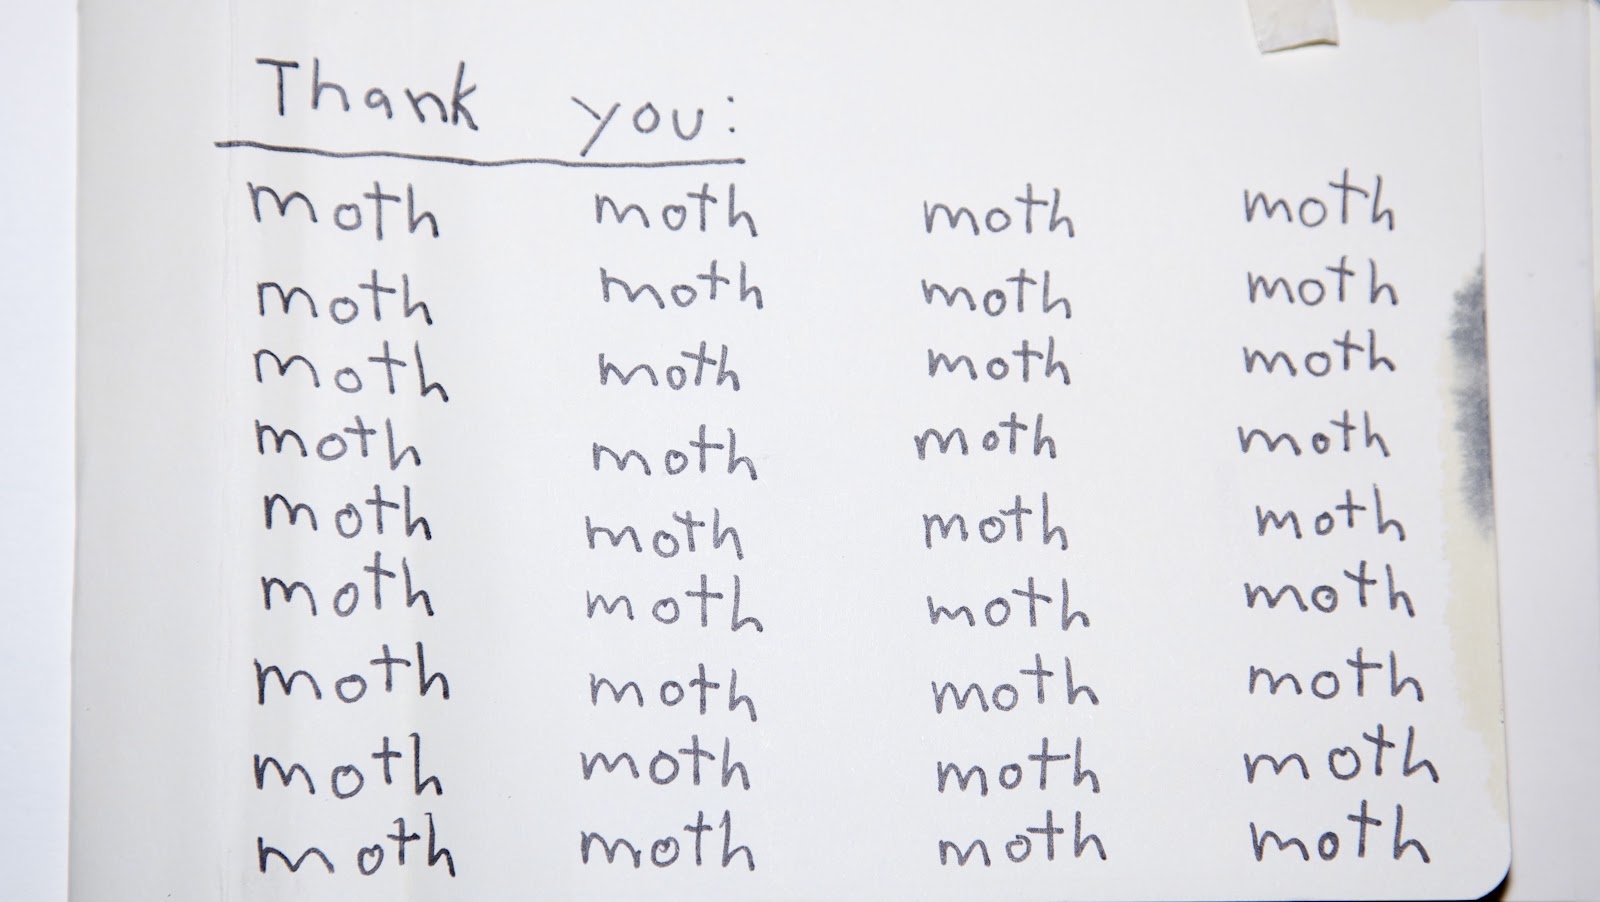 Thank you:
moth moth moth moth
moth moth moth moth
moth moth moth moth
moth moth moth moth
moth moth moth moth
moth moth moth moth
moth moth moth moth
moth moth moth moth
moth moth moth moth